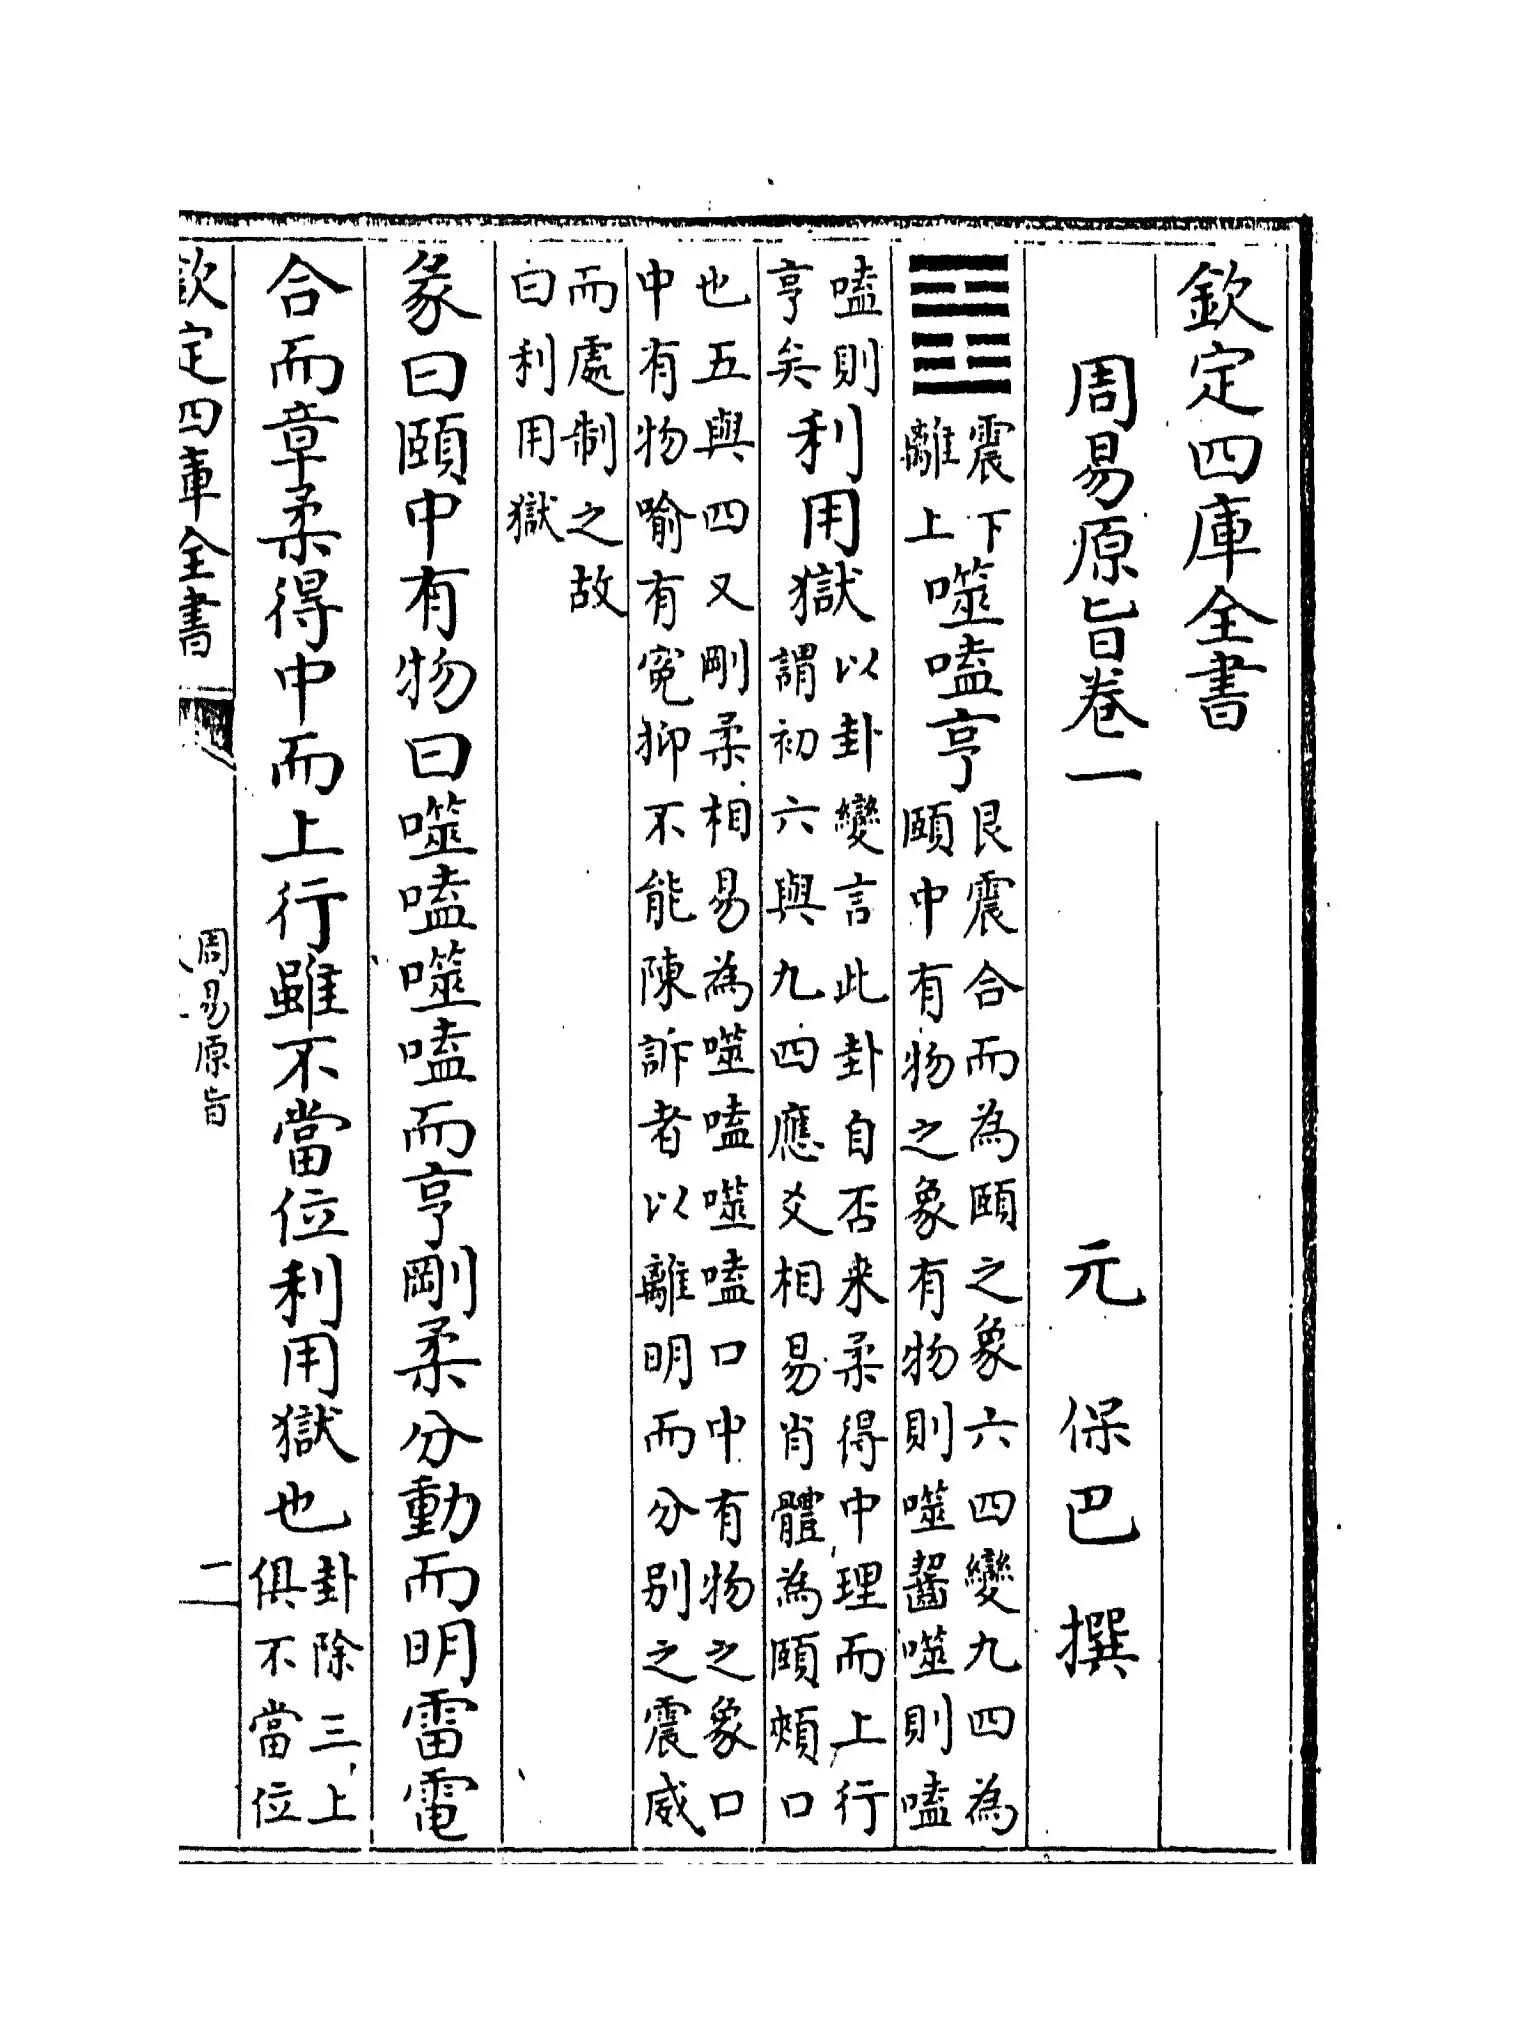 欽定四庫全書
周易原旨卷一　元　保巴　撰
䷔
震下
離上
噬嗑亨
艮震合而為頤之象六四變九四為
頤中有物之象有物則噬齧噬則嗑
嗑則
亨矣
利用獄
以卦變言此卦自否来柔得中理而上行
謂初六與九四應爻相易肖體為頤頰口
也五與四又剛柔相易為噬嗑噬嗑口中有物之象口
中有物喻有寃抑不能陳訴者以離明而分别之震威
而處制之故
曰利用獄
彖曰頤中有物曰噬嗑噬嗑而亨剛柔分動而明雷電
合而章柔得中而上行雖不當位利用獄也
卦除三上
俱不當位
欽定四庫全書
周易原旨
一